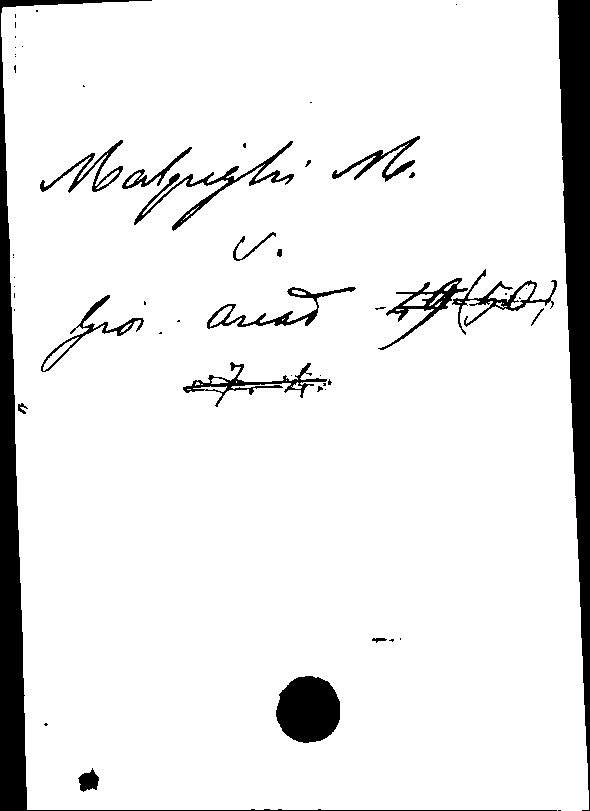 Malpighi M.
v.
Gior. aread 49 (50)
7. 4.